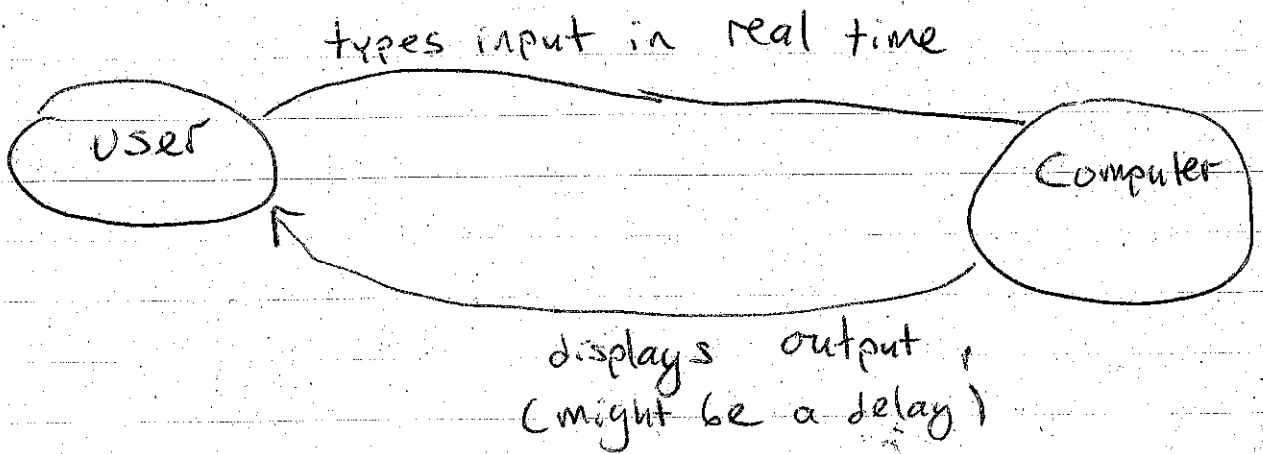 types input in real time
user
Computer
displays output,
(might be a delay)